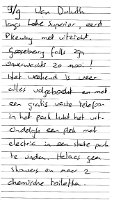 3/9 Van Duluth
langs Lake Superior, eerst
Pkeway met uitzicht.
Gooseberry falls zijn
eveneens zo mooi!
Het weekend is weer
alles volgeboekt en met
een gratis vaste telefoon
in het park lukt het uit-
eindelijk een plek met
electric in een state park
te vinden. Helaas geen
showers en maar 2
chemische toiletten.